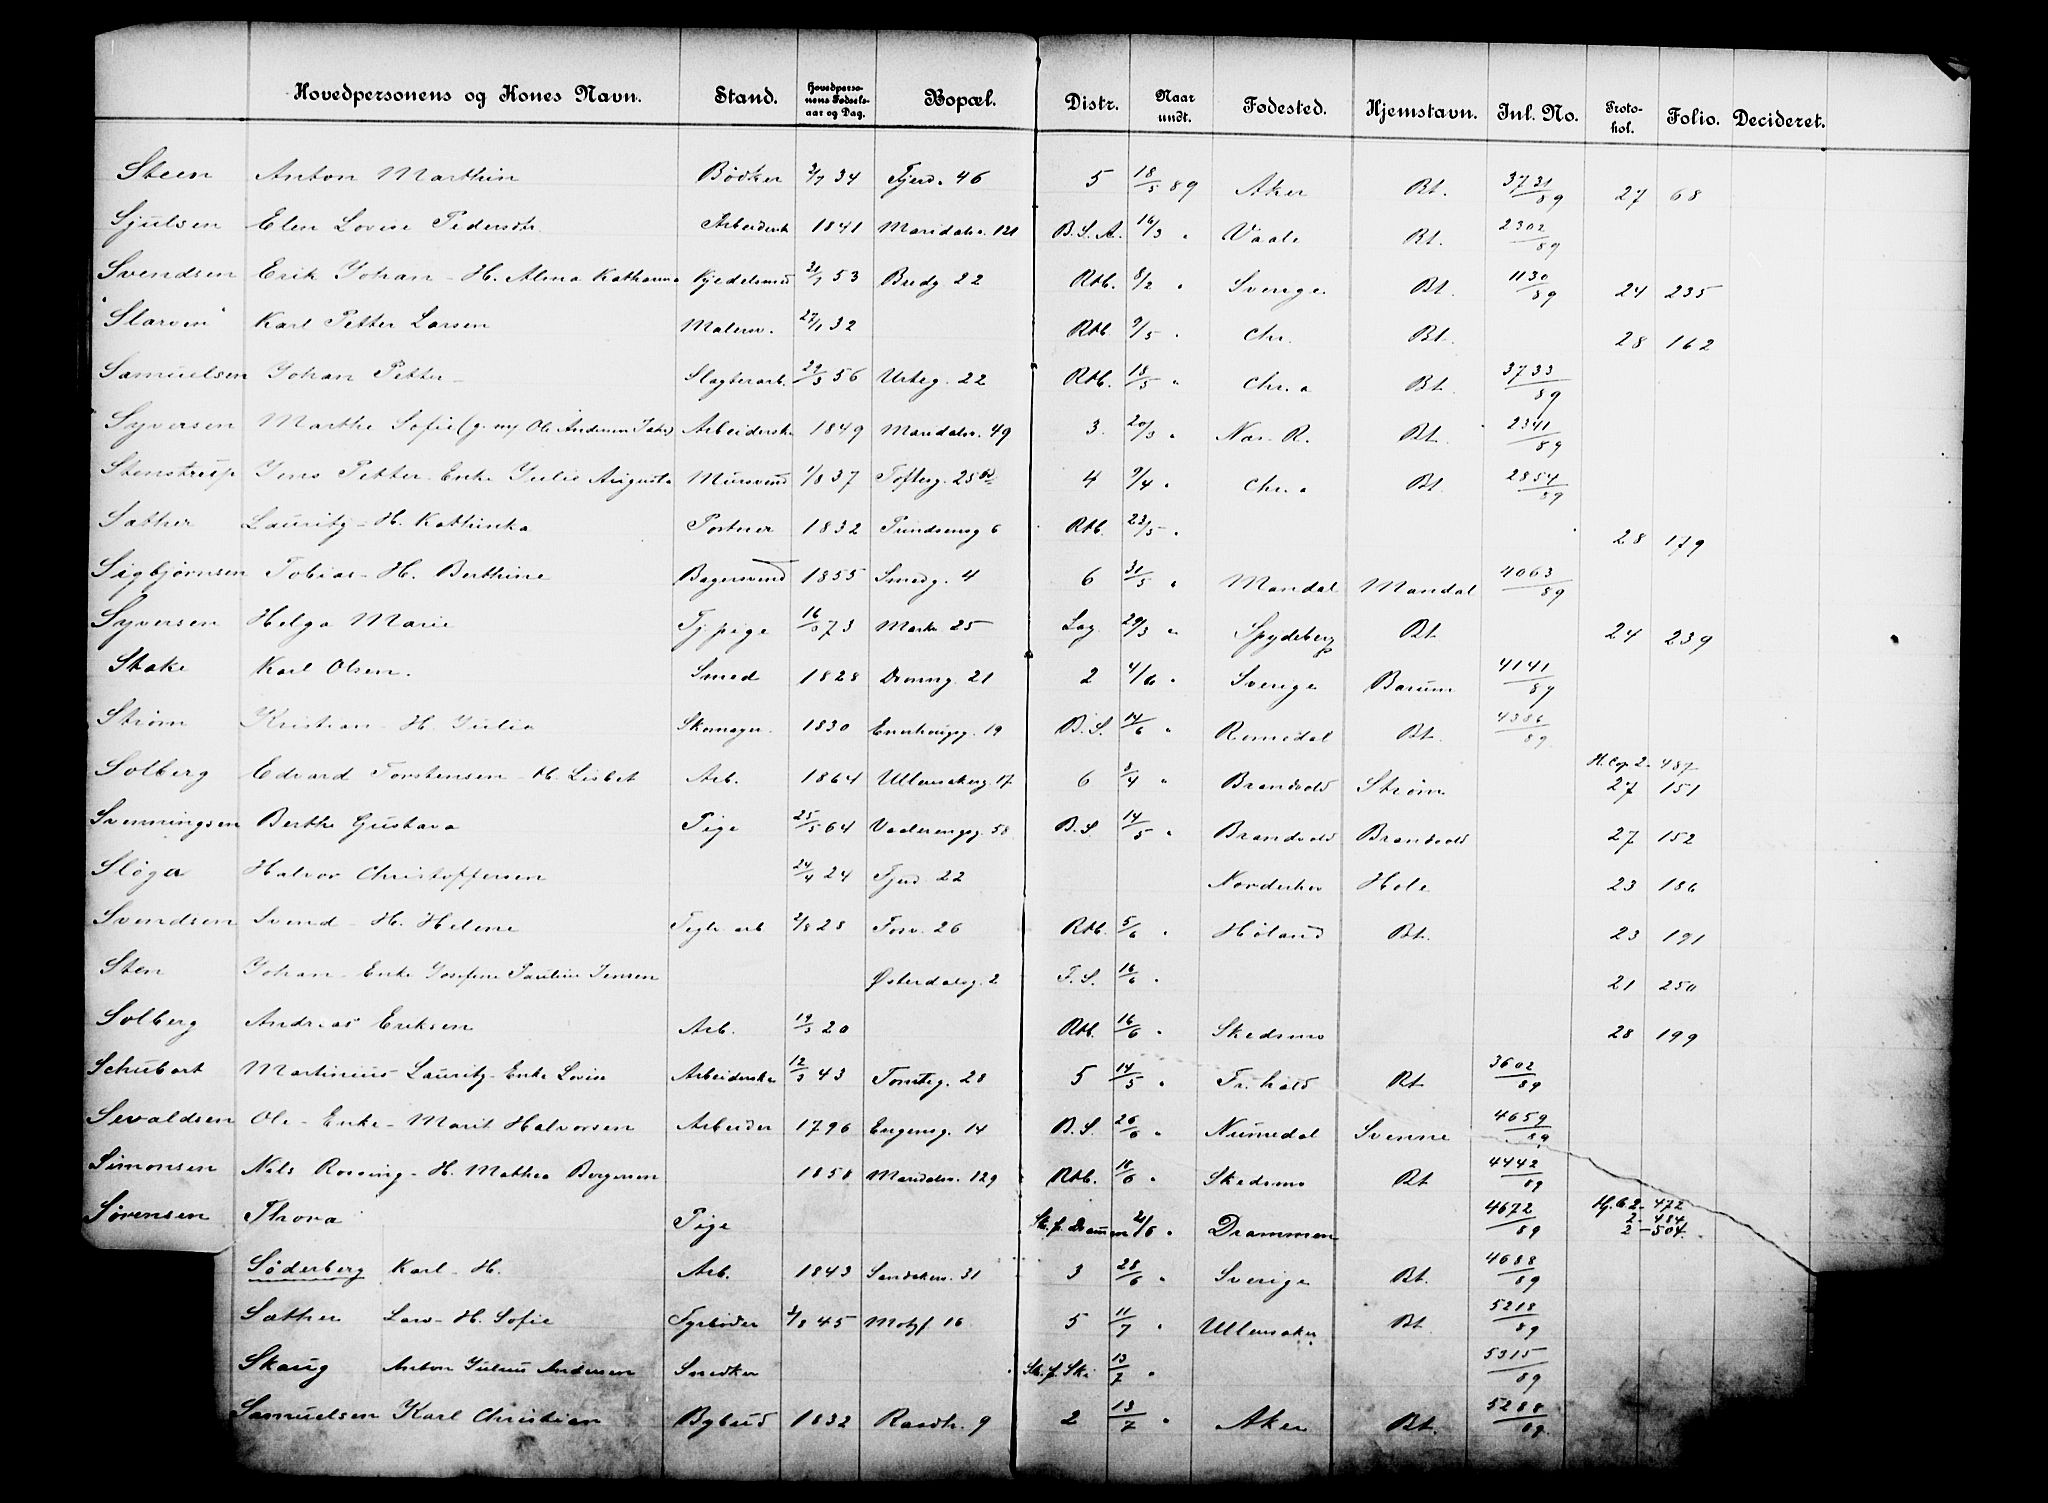 Hovedpersonens og Kones Navn. Stand. Hovedpersonens Fødselsaar og Dag. Bopæl. Distr. Naar undt. Fødested. Hjemstavn. Inl. No. Protokol. Folio. Decideret.
Steen Anton Marthin Bødker 3/7 34 Fjerd. 46 5 18/5 89 Aker Bt. 3731/89 27 68
Sjulsen Elen Lovise Pedersdtr Arbeidersk 1841 Maridalsv. 121 B.S.A. 16/3 " Vaale Bt. 2302/89
Svendsen Erik Johan - H. Alma Katharina Kjedelsmed 21/7 53 Bredg 22 Rtb. 8/2 " Sverige Bt. 1130/89 24 235
"Slarven" Karl Petter Larsen Malersv. 27/1 32 Rtb. 9/5 " Chr. Bt. 28 162
Samuelsen Johan Petter - Slagterarb. 29/3 56 Urteg. 22 Rtb. 18/5 " Chr.a Bt. 3733/89
Syversen Marthe Sofie (g. m/ Ole Andersen) Arbeiderske 1849 Maridalsv. 49 3 20/3 " Næs. R. Bt. 2341/89
Stenstrup Jens Petter - Enke Julie Augusta Mursvend 1/8 37 Tofteg. 25 4 9/4 " Chr.a Bt. 2854/89
Sæther Lauritz - H. Kathinka Portner 1832 Prindsensg 6 Rtb. 23/5 " 28 179
Sigbjørnsen Tobias - H. Berthine Bagersvend 1855 Smedg. 4 6 31/5 " Mandal Mandal 4063/89
Syversen Helga Marie Tj. pige 16/5 73 Markv 25 Lag 29/3 " Spydeberg Bt. 24 239
Stake Karl Olsen. Smed 1828 Dronng. 21 2 4/6 " Sverige Bærum 4141/89
Strøm Kristian - H. Julia Skomager. 1830 Enerhaugg. 19 B.S. 14/6 " Romedal Bt. 4386/89
Solberg Edvard Torstensen - H. Lisbet Arb. 1864 Ullensakerg. 17 6 3/4 " Brandvold Strøm H. Cop. 2. 487 27 151
Svenningsen Berthe Gustava Pige 25/5 64 Vaalerengg. 58 B.S. 14/5 " Brandvold Brandvold 27 152
Sløga Halvor Christoffersen 24/4 24 Fjerd. 22 Norderhov Hole 23 186
Svendsen Svend - H. Helene Teglv. arb 2/8 28 Forv. 26 Rtb. 5/6 " Høland Bt. 23 191
Sten Johan - Enke Josefine Pauline Jensen Østerdalsg. 2 F.S. 16/6 " 21 250
Solberg Andreas Eriksen Arb. 19/3 20 Rtb. 16/6 " Skedsmo 28 199
Schubart Martinius Lauritz - Enke Lovise Arbeiderske 12/3 43 Tomteg. 28 5 14/5 " Fr.hald Bt. 3602/89
Sevaldsen Ole - Enke - Marit Halvorsen Arbeider 1796 Eugensg. 14 B.S. 26/6 " Numedal Svenne 4659/89
Simonsen Nils Rossing - H. Mathea Bergersen 1850 Maridalsv. 129 Rtb. 18/6 " Skedsmo Bt 4442/89
Sørensen Thora Pige St. f. Drammen 21/6 " Drammen 4672/89 Hj. C 2 - 472
2 - 484
2 - 504.
Søderberg Karl - H. Arb. 1843 Sandakerv. 31 3 28/6 " Sverige Bt. 4688/89
Sæther Lars - H. Sofie Fyrbøder 2/8 45 Motzf. 16 5 11/7 " Ullensaker Bt. 5218/89
Skaug Anton Julius Andersen Snedker St. f. Ski 13/7 " 5315/89
Samuelsen Karl Christian Bybud 1832 Raadh. 9 2 13/7 " Aker Bt. 5288/89